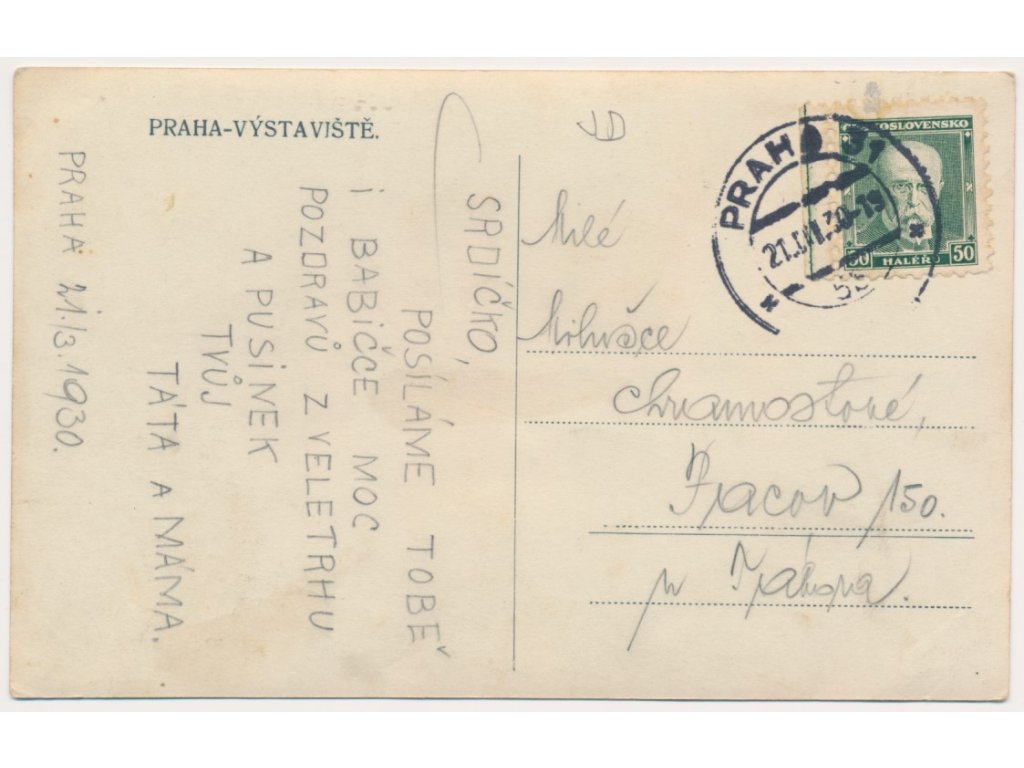 PRAHA-VÝSTAVIŠTĚ.
PRAHA 21./3.1930.
SRDÍČKO,
POSÍLÁME TOBĚ
I BABIČCE MOC
POZDRAVŮ Z VELETRHU
A PUSINEK
TVŮJ
TÁTA A MÁMA.
JD
ČESKOSLOVENSKO
50 HALÉŘŮ 50
PRAHA 31
21.III.30-19
Milé
Milušce
Chramostové,
150.
u Tábora.